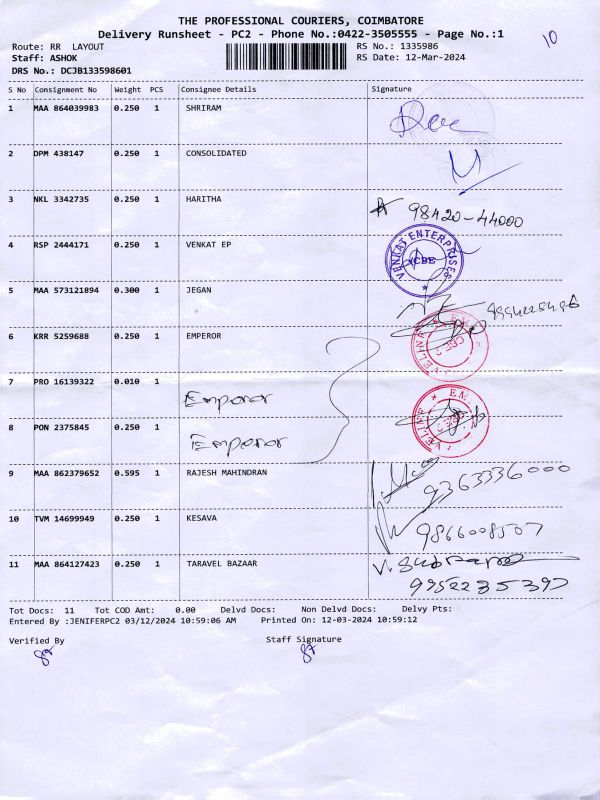 THE PROFESSIONAL COURIERS, COIMBATORE
Delivery Runsheet - PC2 - Phone No.:0422-3505555 - Page No.:1
10
Route: RR LAYOUT
RS No.: 1335986
Staff: ASHOK
RS Date: 12-Mar-2024
DRS No.: DCJB133598601
S No Consignment No Weight PCS Consignee Details Signature
1 MAA 864039983 0.250 1 SHRIRAM
2 DPM 438147 0.250 1 CONSOLIDATED
3 NKL 3342735 0.250 1 HARITHA 98420-44000
4 RSP 2444171 0.250 1 VENKAT EP VENKAT ENTERPRISES CBE
5 MAA 573121894 0.300 1 JEGAN
6 KRR 5259688 0.250 1 EMPEROR
7 PRO 16139322 0.010 1 Emporor
8 PON 2375845 0.250 1 Emporor
9 MAA 862379652 0.595 1 RAJESH MAHINDRAN 9363336000
10 TVM 14699949 0.250 1 KESAVA 9866008507
11 MAA 864127423 0.250 1 TARAVEL BAZAAR
9952235397
Tot Docs: 11 Tot COD Amt: 0.00 Delvd Docs: Non Delvd Docs: Delvy Pts:
Entered By :JENIFERPC2 03/12/2024 10:59:06 AM Printed On: 12-03-2024 10:59:12
Verified By Staff Signature